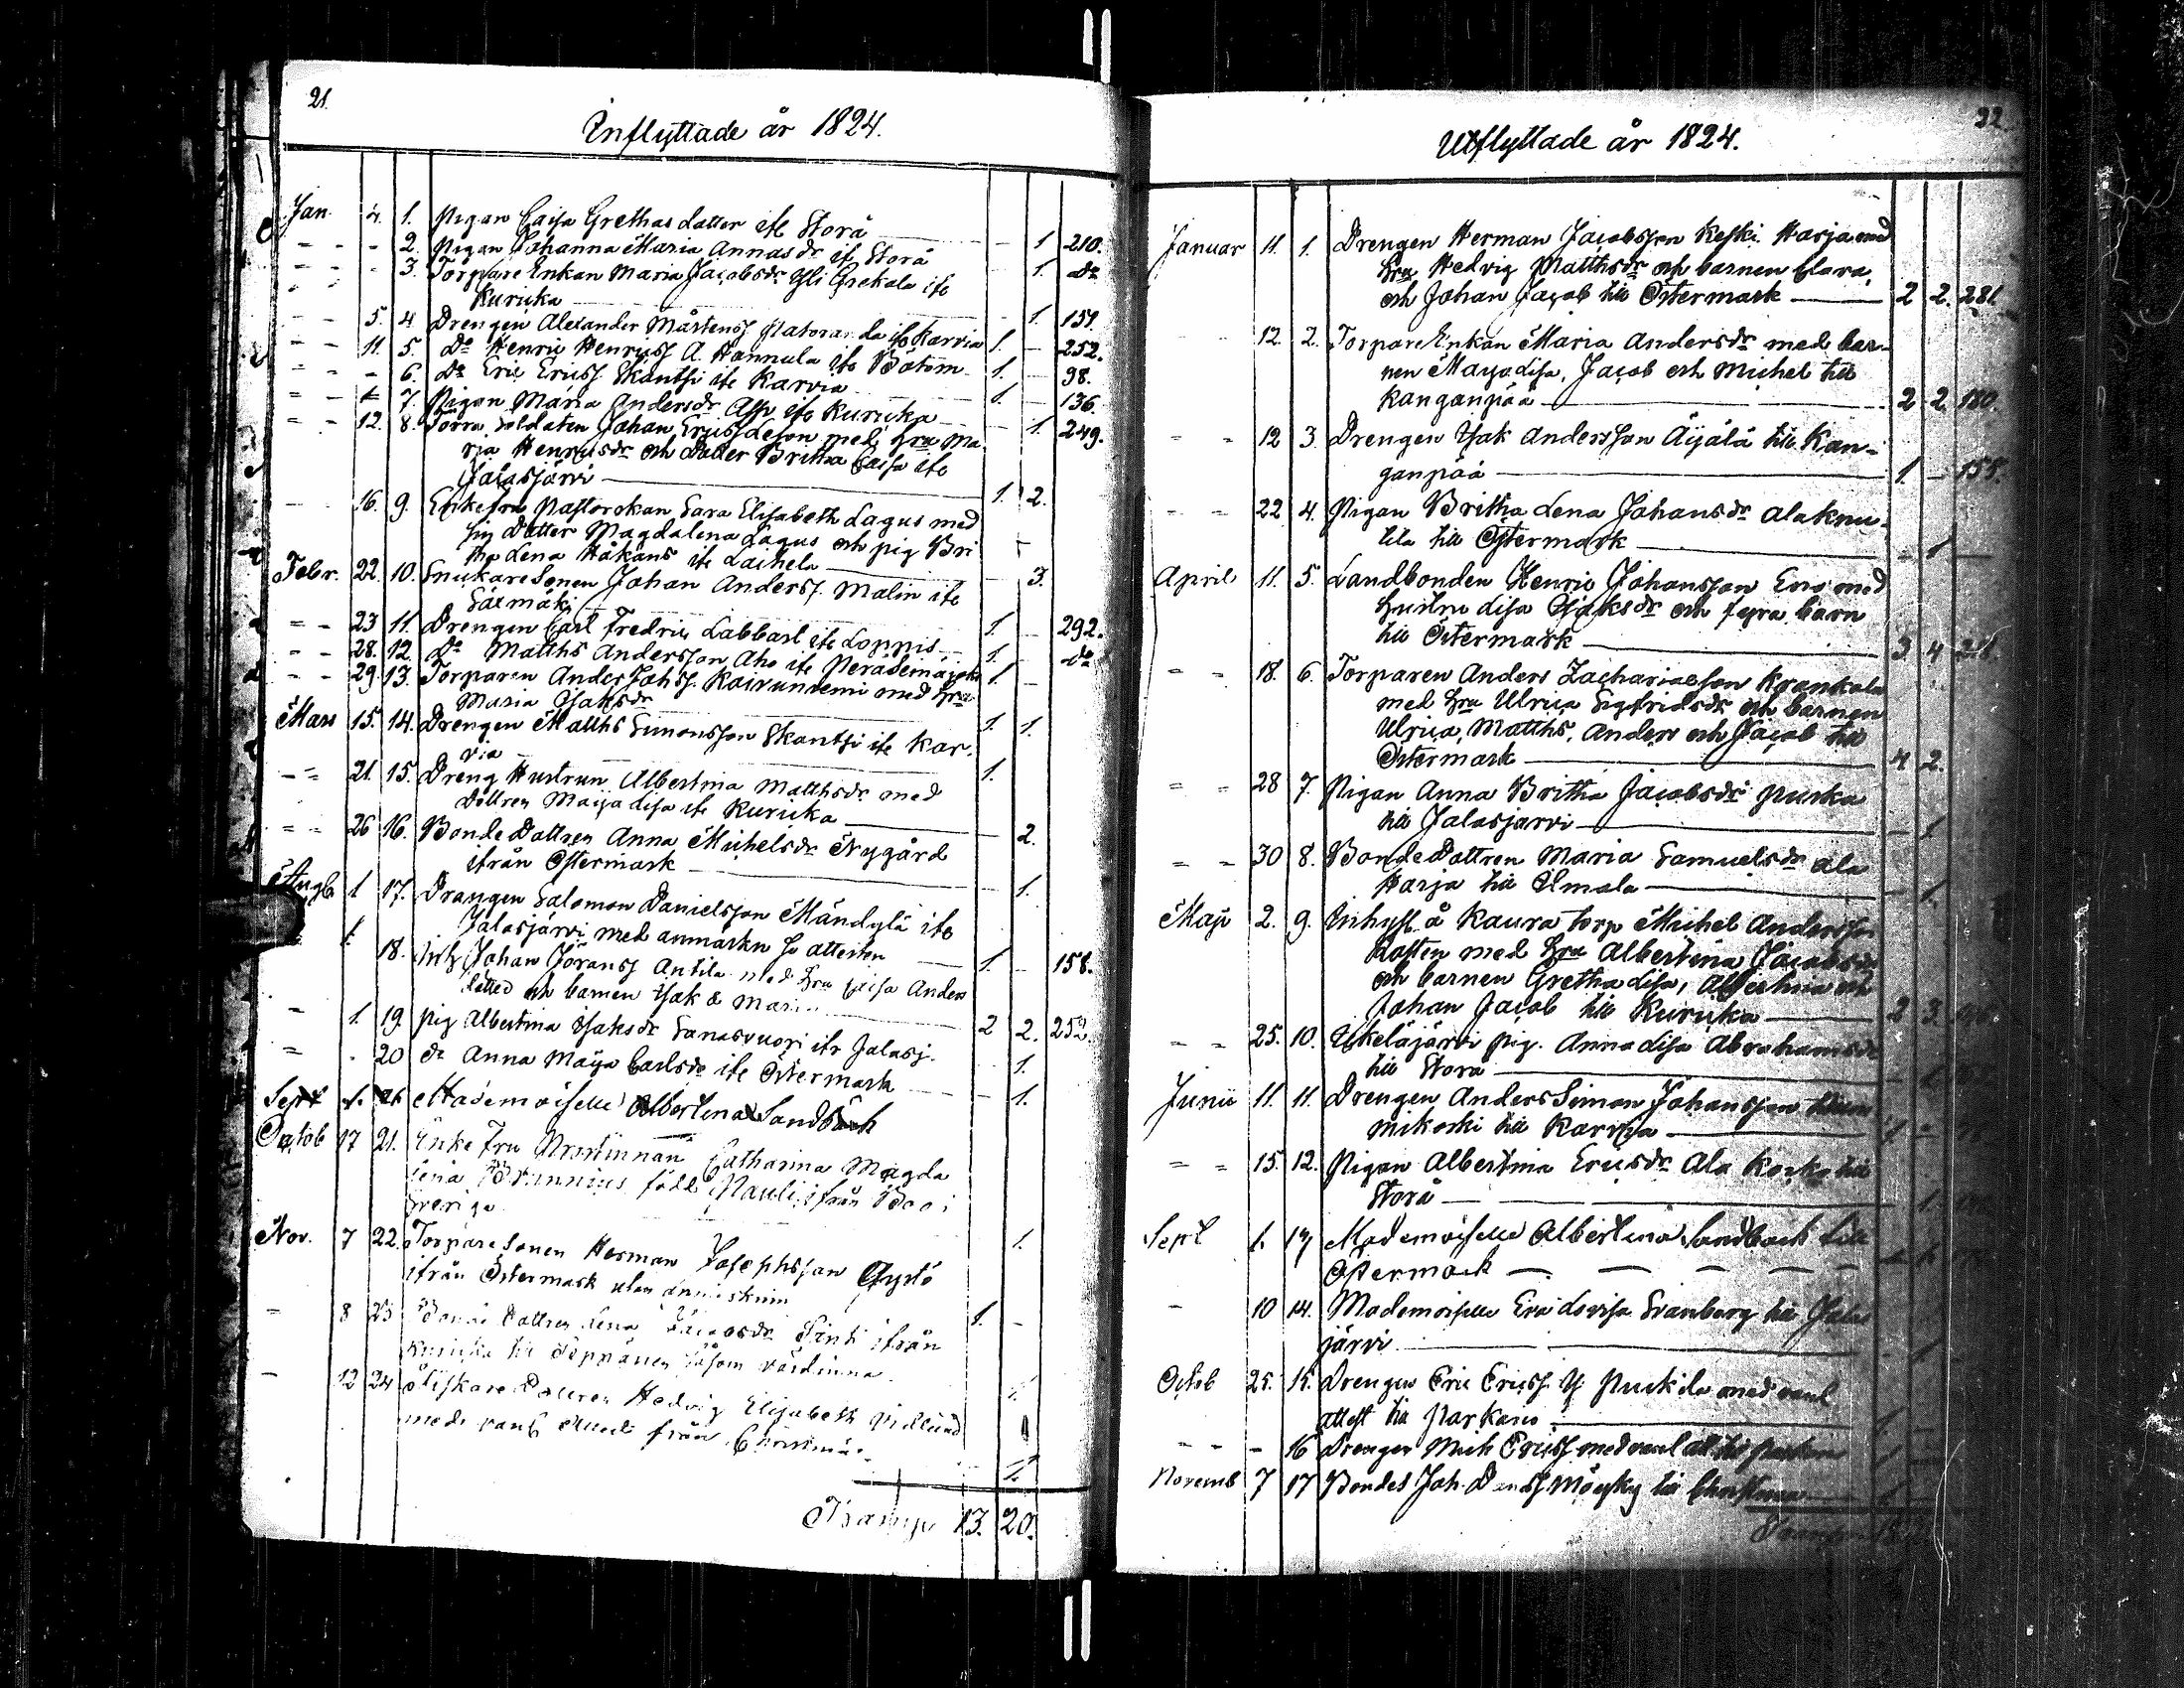 21.
Inflyttade år 1824.
Jan. 4. 1. Pigan Caisa Grethasdotter ifr Storå 1 210.
2. Pigan Johanna Maria Annasdr ifr Storå 1. do
3. Torpare Enkan Maria Jacobsdr Yli Grekola ifr
Kuricka 1. 151.
5. 4 Drengen Alexander Mårtenss ifr Karvia 1. 252.
11. 5. Do Henric Henricss A. Hannula ifr Bötom 1. 98.
6. Do Eric Ericss Skantsi ifr Karvia 1. 136.
7. Pigan Maria Andersdr ifr Kuricka 1. 249.
12. 8. Förra Soldaten Johan med hru Ma
ria Henricsdr och Dotter Britha Caisa ifr
Jalasjärvi 1. 2.
16. 9. Enkefru Pastorskan Sara Elisabeth Lagus med
sin Dotter Magdalena Lagus och pig Bri
tha Lena Håkans ifr Laihela 3.
Febr. 22. 10. Snickare Sonen Johan Anderss. Malin ifr
Säxmäki 1. 292.
23 11. Drengen Carl Fredric Labbart ifr Loppis 1. do
28. 12. Do Matths Andersson Aho ifr 1.
29. 13. Torparen Anders Johss. Koivuniemi med hru
Maria Isaksdr 1. 1.
Mars 15. 14. Drengen Matths Simonsson Skantsi ifr Kar-
via 1.
21. 15. Dreng Hustrun Albertina Matthsdr med
dottren Maija Lisa ifr Kuricka 2.
26 16. Bonde Dottren Anna Michelsdr Nygård
ifrån Östermark 1.
Augti 1 17. Drängen Salomon Danielsson Mändylä ifr
Jalasjärvi med anmärkn 1. 158.
1. 18. Inh Johan Jöranss Antila med hru Caisa Anders
och barnen Isak & Maria 2 2. 252.
1. 19. Pig Albertina Isaksdr Sanasvuori ifr Jalasj. 1.
20 do Anna Maija Carlsdr ifr Östermark 1.
Sept 1. 21 Mademoiselle Albertina Sandbäck
Octob 17 21. Enke Fru Catharina Magda
lena född Pauli ifrån
Sverige 1.
Nov. 7 22. Torpare Sonen Herman Josephsson
ifrån Östermark utan 1.
8 23 Bonde Dottren Lena Jacobsdr ifrån
Kuricka till såsom värdinna
12 24 Dottren Hedvig Elisabeth
med från
Transp 13. 20.
22
Utflyttade år 1824.
Januar 11. 1. Drengen Herman Jacobsson Keski Harja med
hru Hedvig Matthsdr och barnen Clara,
och Johan Jacob till Östermark 2 2. 281.
12 2. Torpare Enkan Maria Andersdr med bar-
nen Maija Lisa, Jacob och Michel till
Kanganpää 2 2 180.
12 3. Drengen Isak Andersson Äijälä till Kan-
ganpää 1 155.
22 4. Pigan Britha Lena Johansdr Alaknu-
tila till Östermark 1
April 11. 5. Landbonden Henric Johansson Ens med
hustru Lisa Isaksdr och fyra barn
till Östermark 3 4
18. 6. Torparen Anders Zachariasson Krankala
med hru Ulrica Sigfridsdr och barnen
Ulrica, Matths, Anders och Jacob till
Östermark 4 2.
28 7. Pigan Anna Britha Jacobsdr Puska
till Jalasjärvi 1
30 8. Bonde Dottren Maria Samuelsdr Ala
Harja till Ilmola 1.
Maji 2. 9. Inhys. å Kaura torp Michel Andersson
med hru Albertina Jacobsdr
och barnen Gretha Lisa, Albertina och
Johan Jacob till Kuricka 2 3
25. 10. pig. Anna Lisa Abrahamsdr
till Storå 1
Junii 11. 11. Drengen Anders Simon Johansson
mikoski till Karvia 1
15. 12. Pigan Albertina Ericsdr Ala till
Storå 1
Sept 1. 13 Mademoiselle Albertina Sandback till
Östermark
10 14. Mademoiselle Eva Lovisa Svanberg till Jalas
järvi 1
Octob 25. 15. Drengen Eric Ericss Y. med vanl
attest till Parkano 1
16 Drengen Mich Ericss med vanl att till
Novemb 7 17 Bondes. Joh. till 1